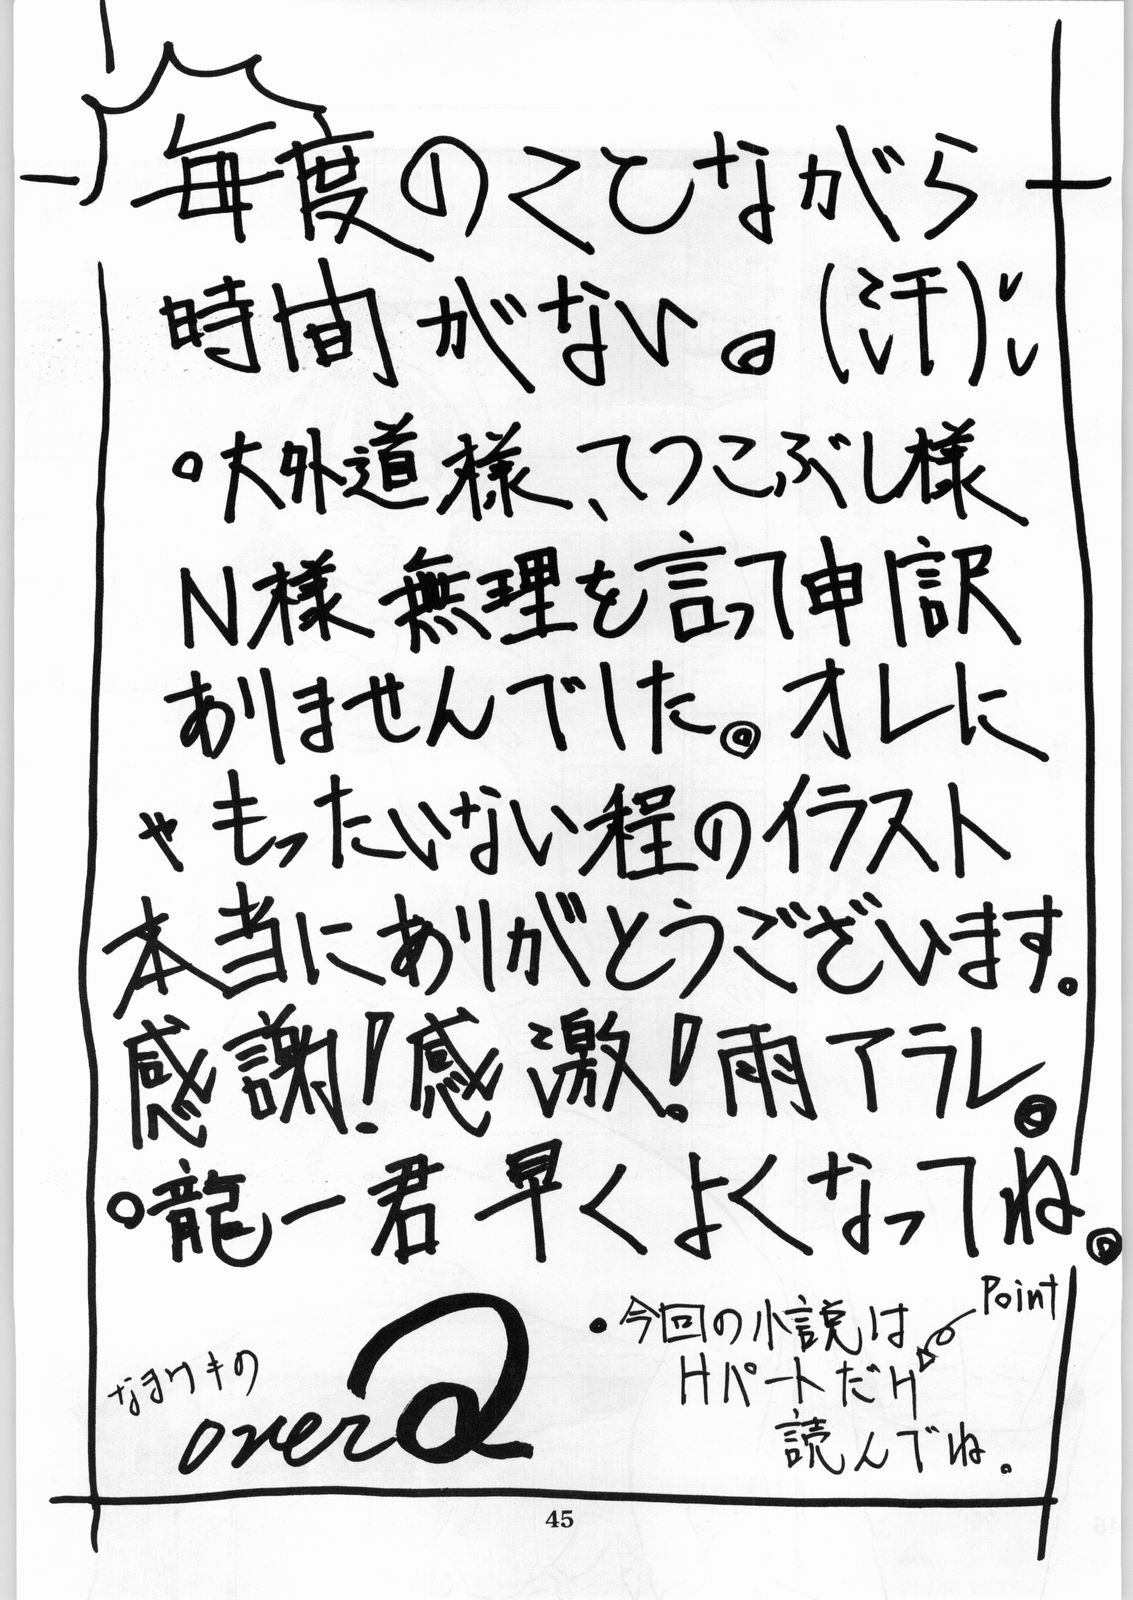 毎度のことながら
時間がない。(汗)
○大外道様、てつこぶし様
N様無理を言って申し訳
ありませんでした。オレに
ゃもったいない程のイラスト
本当にありがとうございます。
感謝!感激!雨アラレ。
○龍一君早くよくなってね。
Point
・今回の小説は
Hパートだけ
読んでね。
なまけものの
overQ
45